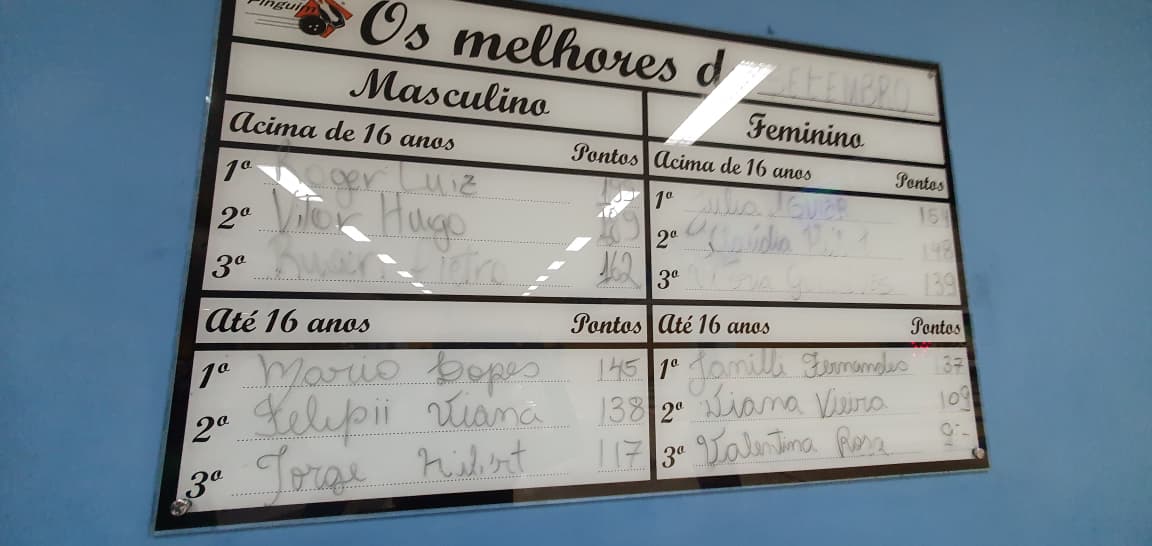 Pinguim
Os melhores d SETEMBRO
Masculino
Acima de 16 anos Pontos
1º Roger Luiz
2º Vitor Hugo 169
3º 162
Feminino
Acima de 16 anos Pontos
1º Julia 154
2º Claudia 148
3º 139
Até 16 anos Pontos
1º Mario Lopes 145
2º Felipii Viana 138
3º Jorge 117
Até 16 anos Pontos
1º Janilli Fernandes 137
2º Liana Vieira 109
3º Valentina Rosa